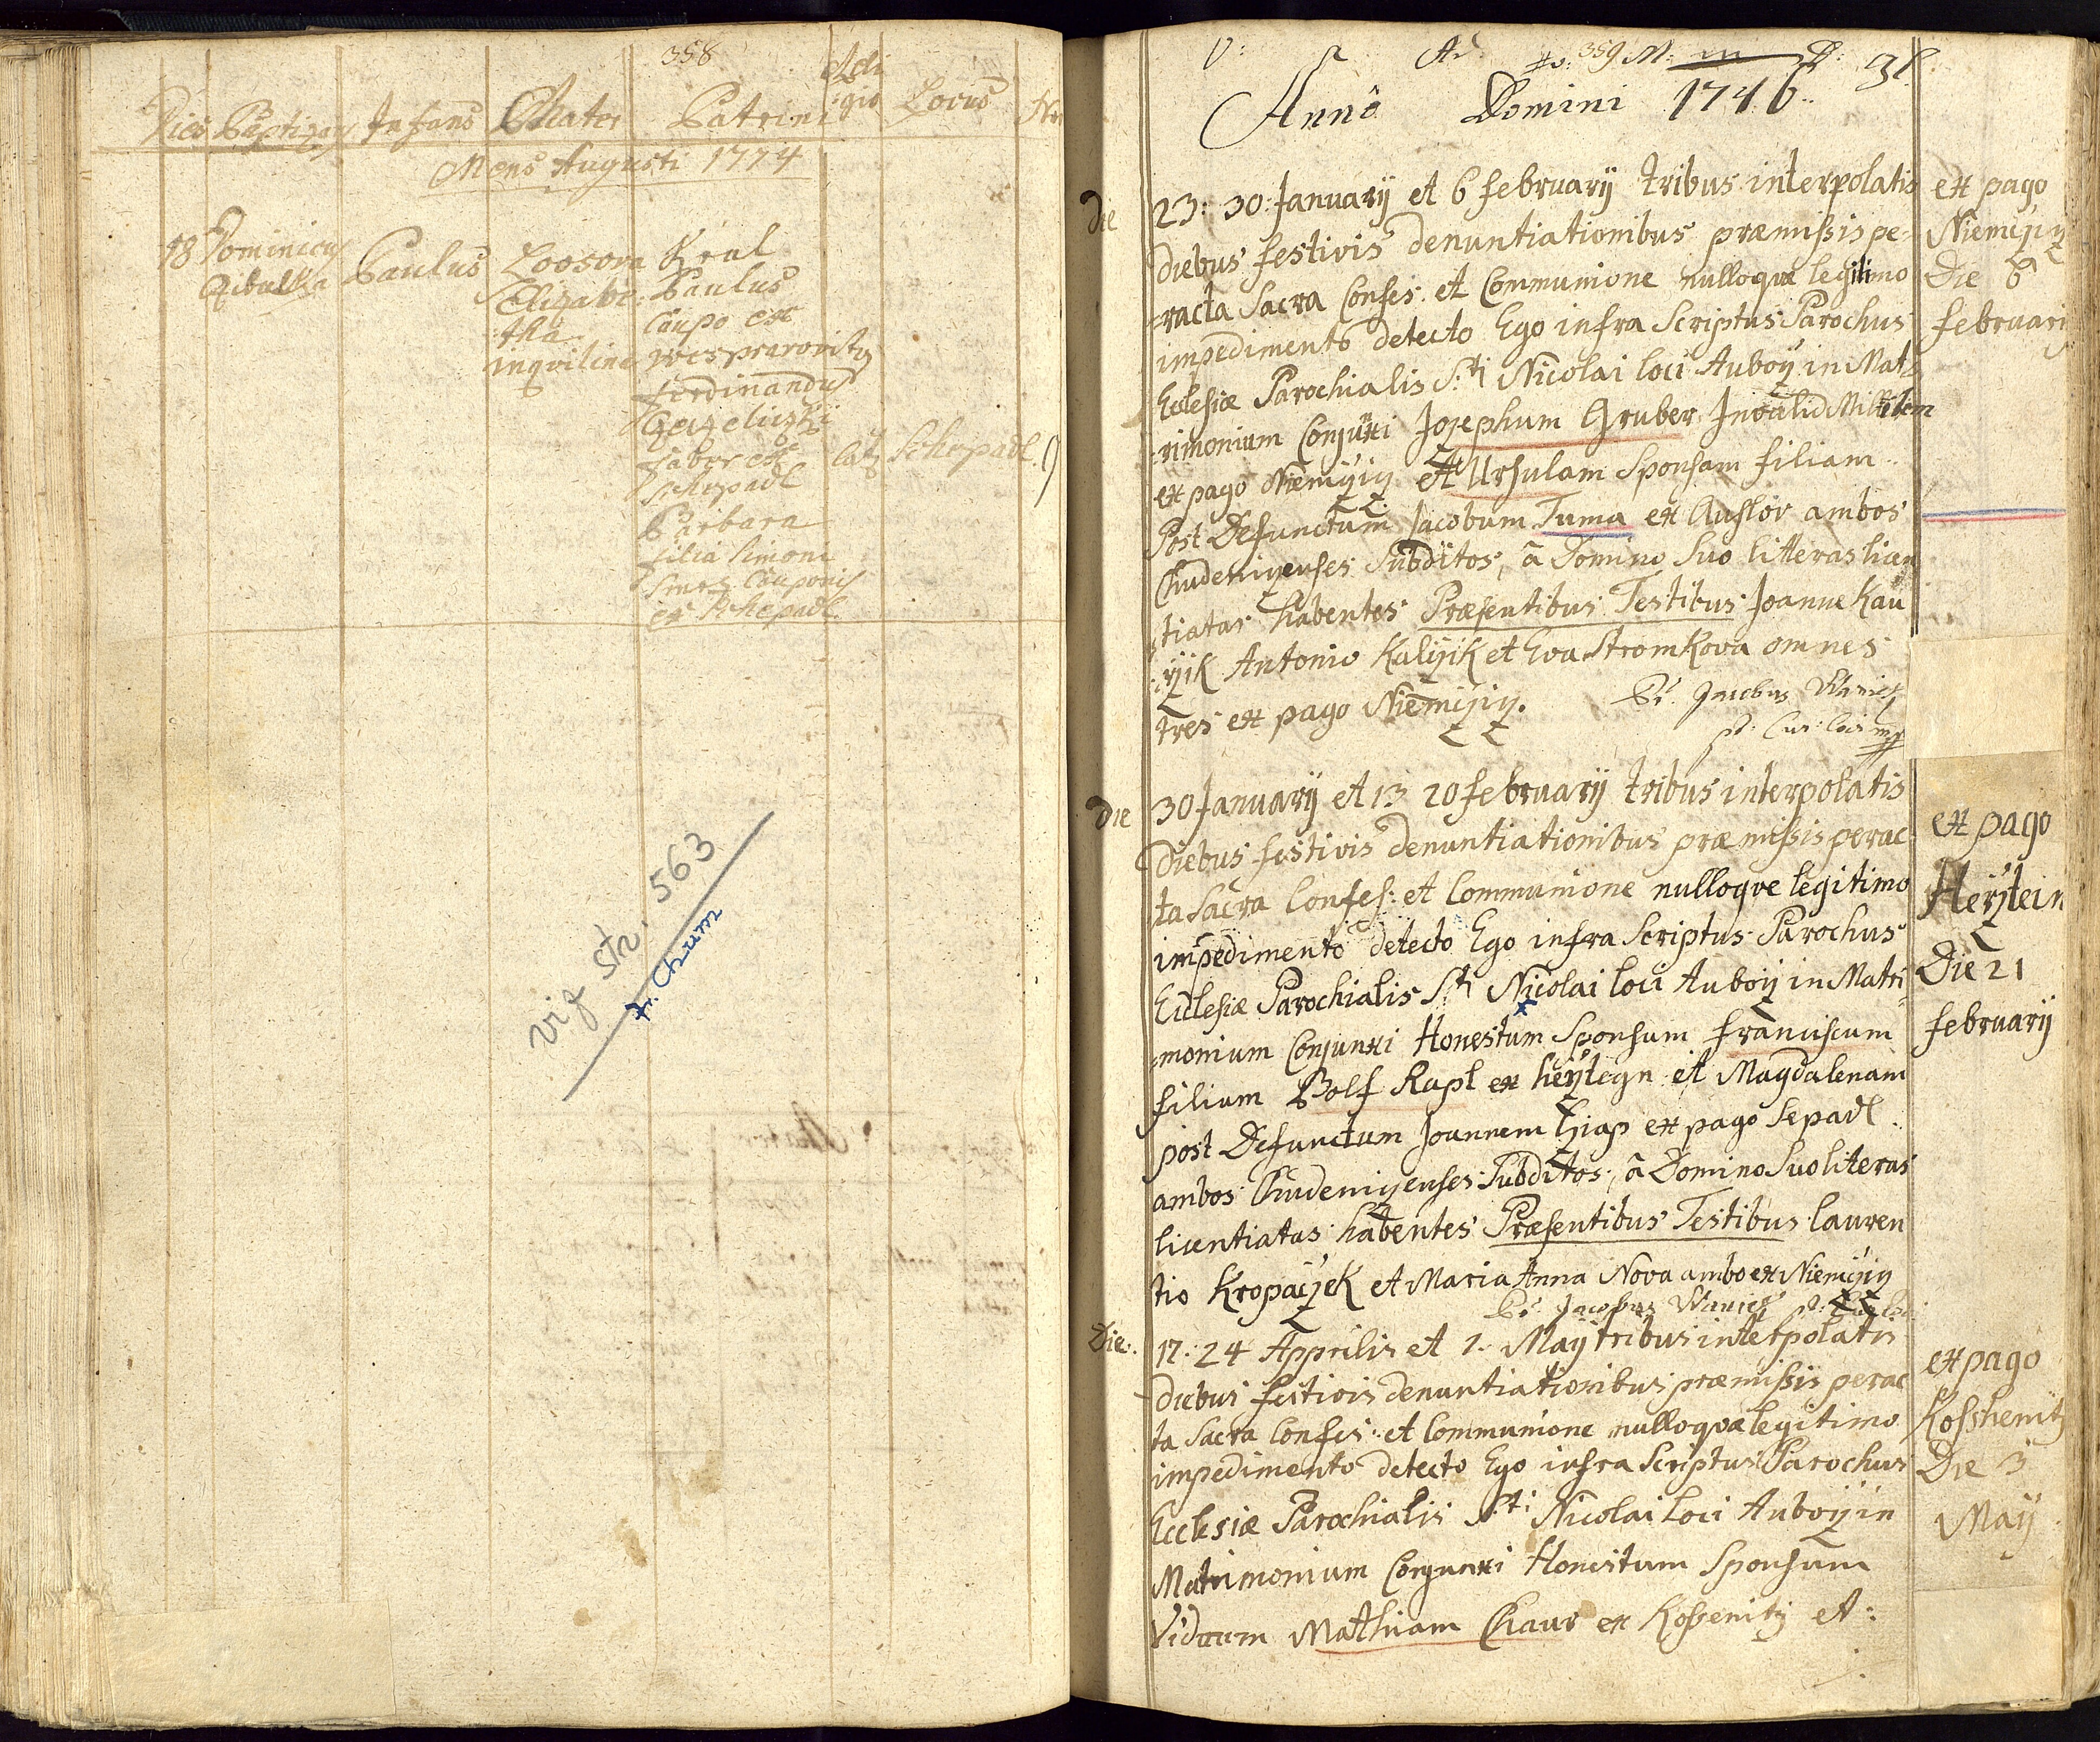 358
Dies Baptizans Infans Mater Patrini Reli
gio Locus
Mens Augusti 1774
18 Dominicus Paulus Loosova Kral
Cibulka Elizabe: Paulus
tha Caupo ex
inqviline
Ferdinandus
faber ex cat Schepadl
Schepadl
Barbara
filia Simoni
Cauponis
ex Schepadl
viz str. 563
Fr. Chum
359
Annô Domini 1746
Die 23: 30: Januarÿ et 6 februarÿ tribus interpolatis
diebus festivis denuntiationibus præmissis pe-
racta Sacra Confes: et Communione nulloque legitimo
impedimento detecto Ego infra Scriptus Parochus
Eclesiæ Parochialis S:ti Nicolai loci Auboÿ in Mat-
rimonium Conjuxi Jozephum Gruber Invalid Militem
ex pago Niemczicz et Ursulam Sponsam filiam
Post Defunctum Jacobum Tuma ex Auslov ambos
Chudeniczenses Subditos, â Domino Suo litteras lian
tiatas habentes Præsentibus Testibus Joanne Kau
czik Antonio Kulczik et Eva Stromkova omnes
tres ex pago Niemczicz.
Pr. Jacobus Waniek
p: Cur: loci mp
ex pago
Niemczicz
Die 6
februarÿ
Die 30 Januarÿ et 13 20 februarÿ tribus interpolatis
Diebus festivis denuntiationibus præmissis perac
ta Sacra Confes: et Communione nulloqve legitimo
impedimento detecto Ego infra Scriptus Parochus
Eclesiæ Parochialis S:ti Nicolai loci Auboÿ in Matri-
monium Conjunxi Honestum Sponsum franciscum
filium Wolf Rapl ex heÿztegn et Magdalenam
post Defunctum Joannem Cziap ex pago Sepadl
ambos Chudeniczenses Subditos, â Domino Suo literas
licentiatas habentes Præsentibus Testibus lauren
tio Kropaczek et Maria Anna Nova ambo ex Niemczicz
Pr. Jacobus Waniek p: Cur: loci
ex pago
Heÿztein
Die 21
februarÿ
Die 17: 24 Apprilis et 1. Maÿ tribus interpolatis
diebus festivis denuntiationibus præmissis perac
ta Sacra Confes: et Communione nulloqve legitimo
impedimento detecto Ego infra Scriptus Parochus
Ecclesiæ Parochialis S:ti Nicolai loci Auboÿ in
Matrimonium Conjunxi Honestum Sponsum
Viduum Mathiam Chaur ex Kossenitz et:
ex pago
Kosshenitz
Die 3
Maÿ